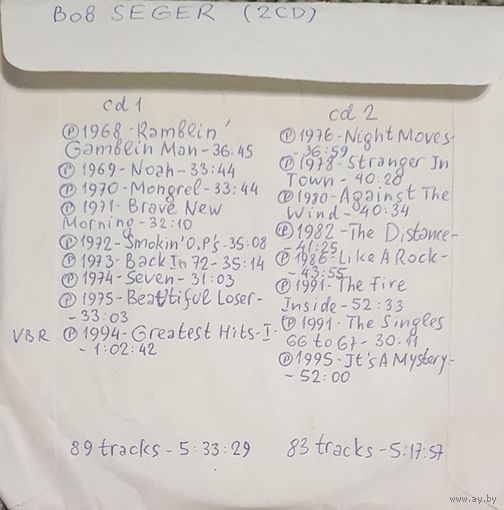 Bob SEGER (2CD)
cd 1
Ⓟ1968-Ramblin'
Gamblin Man-36:45
Ⓟ1969-Noah-33:44
Ⓟ1970-Mongrel-33:44
Ⓟ1971-Brave New
Morning-32:10
Ⓟ1972-Smokin'O.P's-35:08
Ⓟ1973-Back In 72-35:14
Ⓟ1974-Seven-31:03
Ⓟ1975-Beautiful Loser-
-33:03
VBR Ⓟ1994-Greatest Hits-I-
-1:02:42
89 tracks-5:33:29
cd 2
Ⓟ1976-Night Moves-
-36:59
Ⓟ1978-Stranger In
Town-40:20
Ⓟ1980-Against The
Wind-40:34
Ⓟ1982-The Distance-
-41:25
Ⓟ1986-Like A Rock-
-43:55
Ⓟ1991-The Fire
Inside-52:33
Ⓟ1991-The Singles
66 to 67-30:11
Ⓟ1995-It's A Mystery-
-52:00
83 tracks-5:17:57
www.ay.by